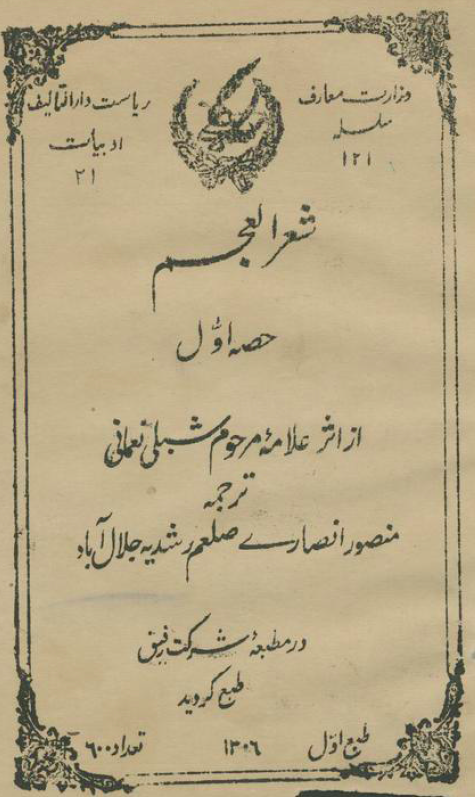 وزارت معارف
سلسله
۱۲۱
ریاست دارالتالیف
ادبیات
۲۱
شعر العجم
حصه اوّل
از اثر علامهٔ مرحوم شبلی نعمانی
ترجمه
منصور انصارے معلم رشدیه جلال آباد
در مطبعهٔ شرکت رفیق
طبع گردید
طبع اوّل
۱۳۰۶
تعداد ۶۰۰